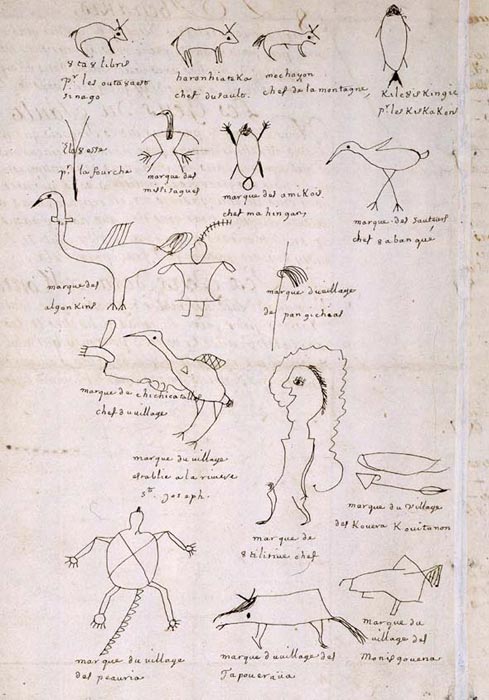 8ta8liBris
pr les outa8aest
sinago
haronhiateka
chef du sault.
mechayon
chef de la montagne,
Kile8isKingie
pr les KisKaKons
Ela8esse
pr la fourche
marque des
missisaguez
marque des amiKois
chef mahingan,
marque des sauteurs
chef 8abangué
marque des
algonKins
marque du village
de pangicheas
marque de chichicatallo
chef du village
marque du village
establie a la riviere
St. Joseph.
marque de
8tilirine chef
marque du village
des Kouera Kouitanon
marque du village
des peauria
marque du village des
Tapoueraüa
marque du
village des
Monisgouena